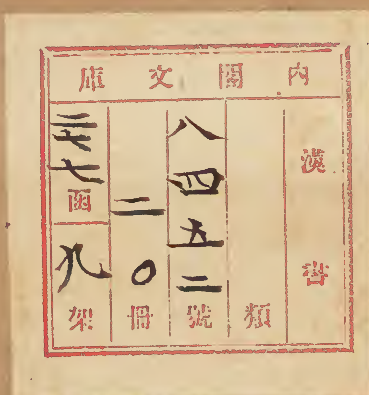 內閣文庫
漢書
類
八四五二號
二〇冊
二七七函
九架